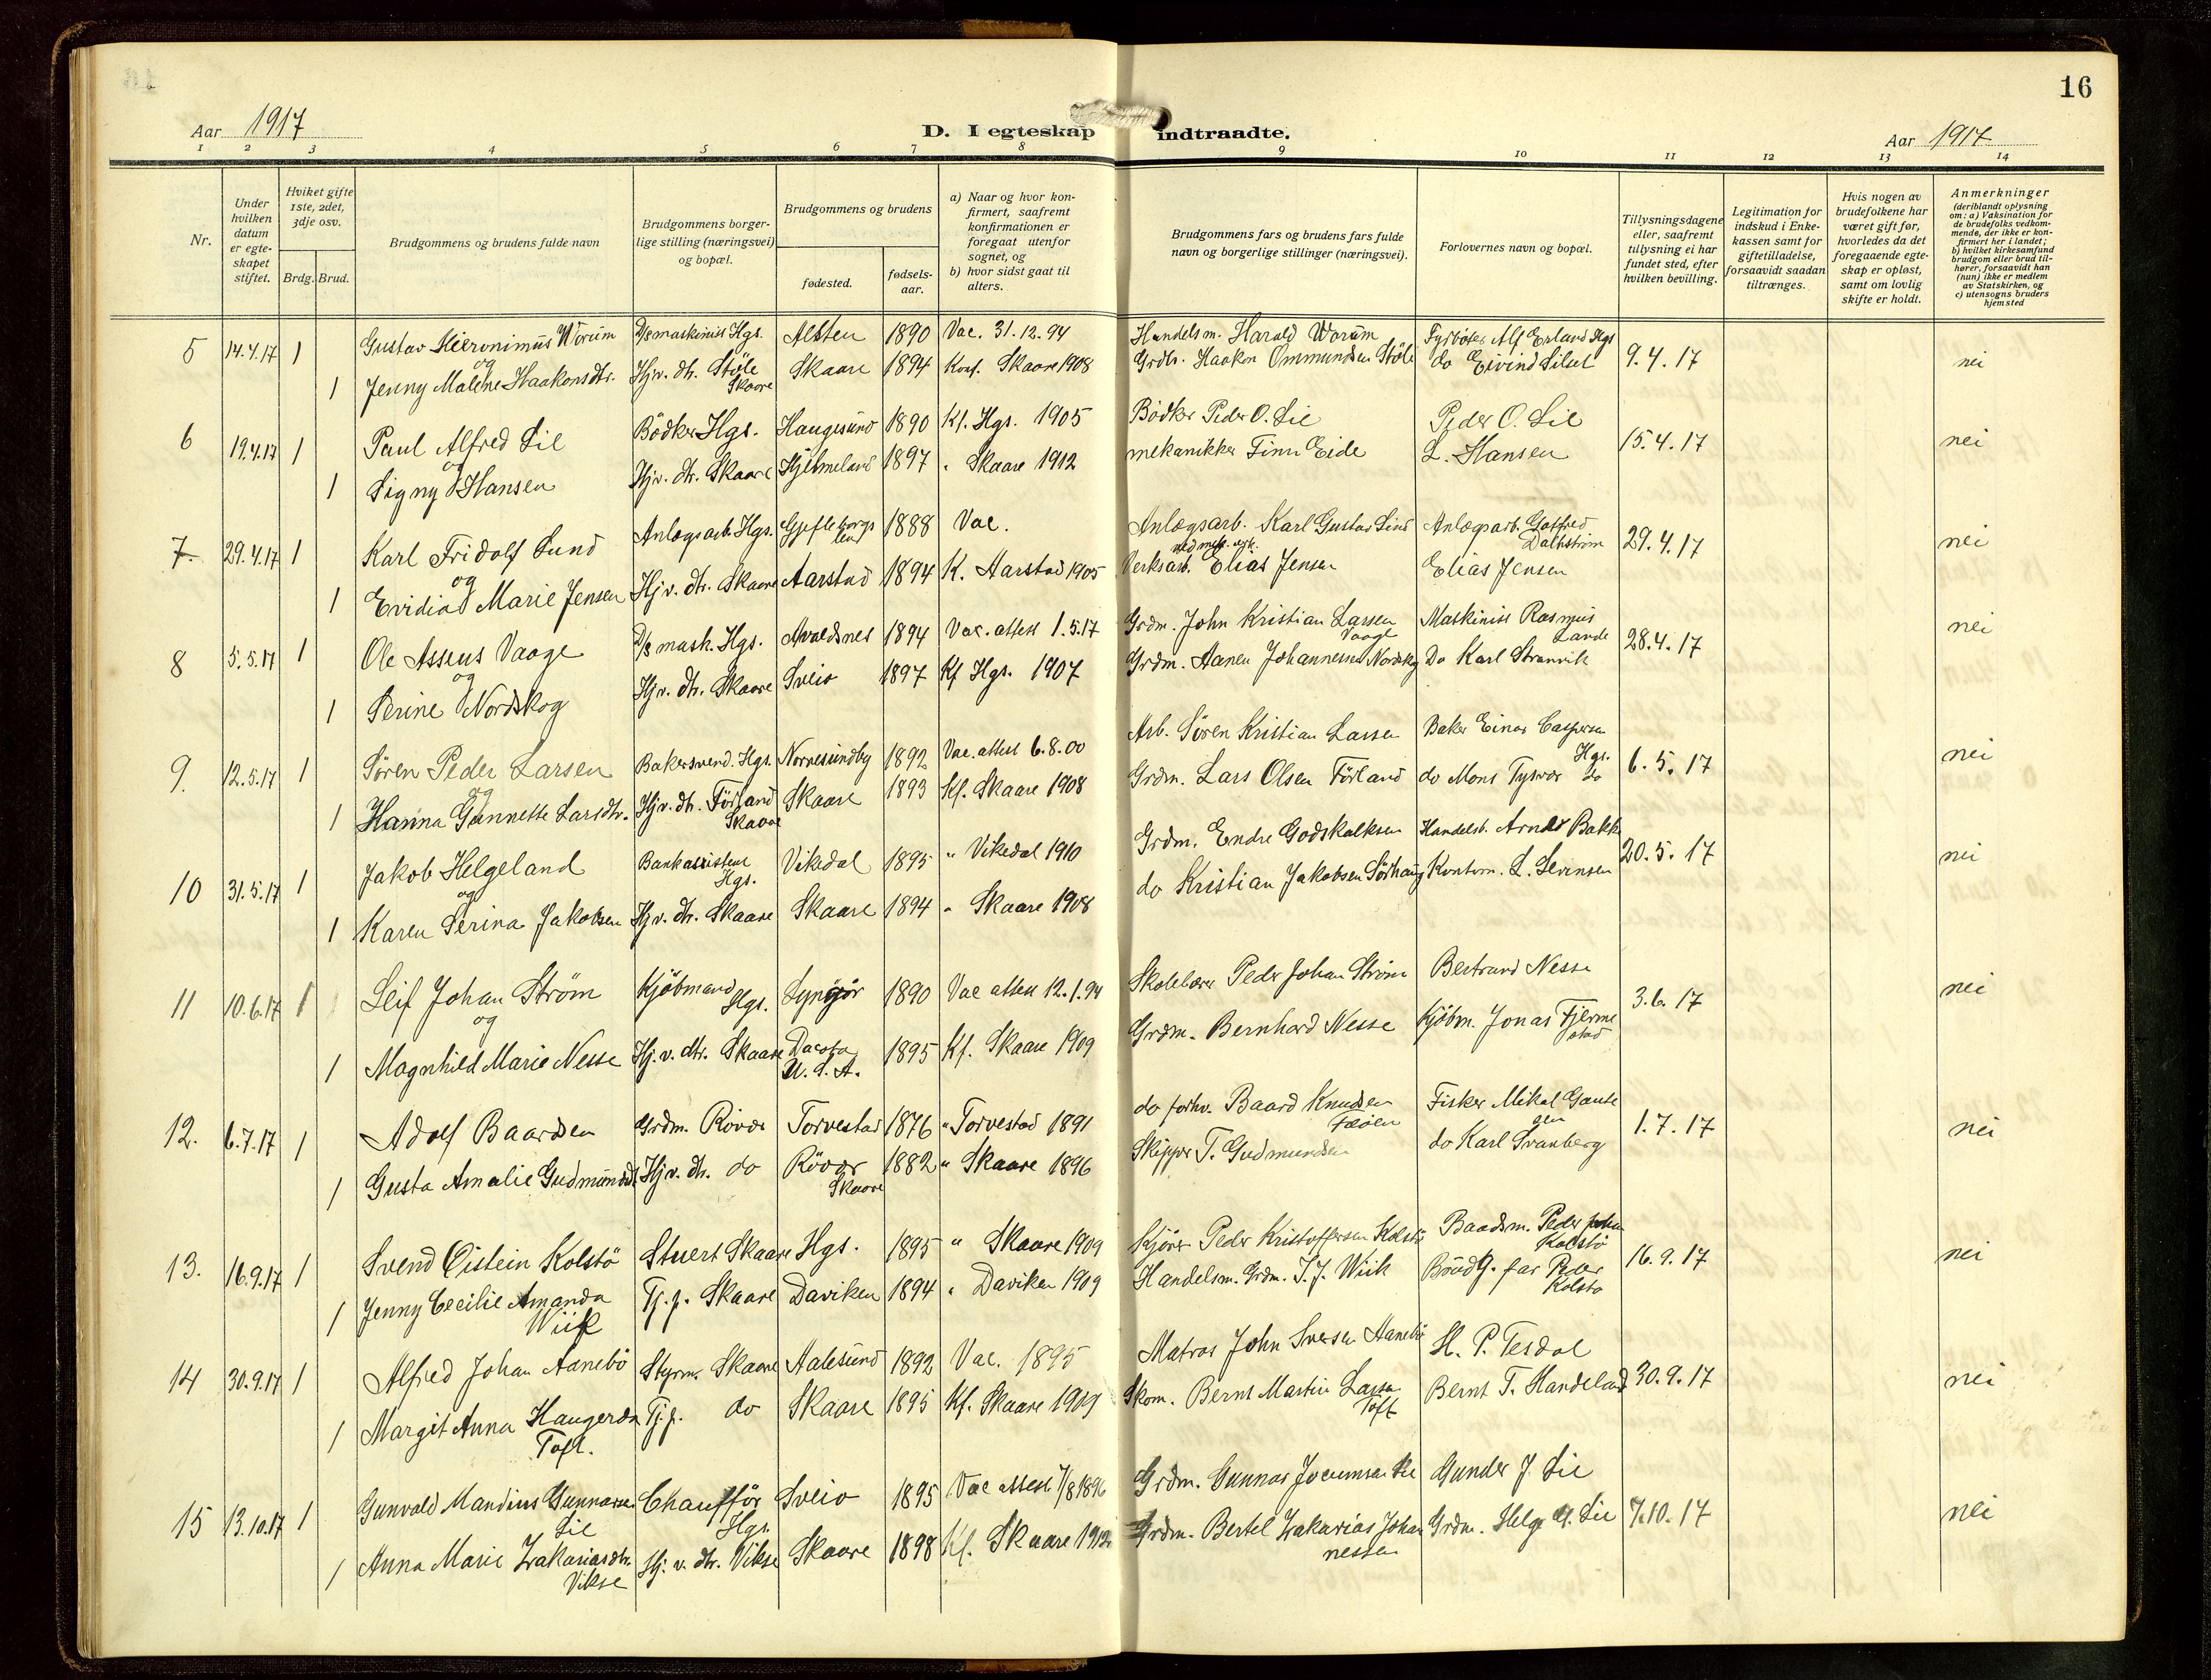 16
Aar 1917
D. I egteskap indtraadte.
Aar 1917
1 2 3 4 5 6 7 8 9 10 11 12 13 14
Nr.
Under hvilken datum er egteskapet stiftet.
Hviket gifte 1ste, 2det, 3dje osv.
Brdg. Brud.
Brudgommens og brudens fulde navn
Brudgommens borgerlige stilling (næringsvei) og bopæl.
Brudgommens og brudens
fødested.
fødselsaar.
a) Naar og hvor konfirmert, saafremt konfirmationen er foregaat utenfor sognet, og
b) hvor sidst gaat til alters.
Brudgommens fars og brudens fars fulde navn og borgerlige stillinger (næringsvei).
Forlovernes navn og bopæl.
Tillysningsdagene eller, saafremt tillysning ei har fundet sted, efter hvilken bevilling.
Legitimation for indskud i Enkekassen samt for giftetilladelse, forsaavidt saadan tiltrænges.
Hvis nogen av brudefolkene har været gift før, hvorledes da det foregaaende egteskap er opløst, samt om lovlig skifte er holdt.
Anmerkninger (deriblandt oplysning om: a) Vaksination for de brudefolks vedkommende, der ikke er konfirmert her i landet; b) hvilket kirkesamfund brudgom eller brud tilhører, forsaavidt han (hun) ikke er medlem av Statskirken, og c) utensogns bruders hjemsted
5 14.4.17 1 Gustav Hieronimus Worum D/s maskinist Hgs. Alsten 1890 Vac. 31.12.94 Handelsm. Harald Worum Fyrböter Alf Erland Hgs 9.4.17 nei
og
1 Jenny Malene Haakonsdtr. Hjv. dtr. Stöle Skaare Skaare 1894 Konf. Skaare 1908 Grdbr. Haakon Ommundsen Stöle do Eivind Silset
6 19.4.17 1 Paul Alfred Lie Bödker Hgs. Haugesund 1890 Kf. Hgs. 1905 Bödker Peder O. Lie Peder O. Lie 15.4.17 nei
og
1 Signy Hansen Hjv. dtr. Skaare Hjelmeland 1897 " Skaare 1912 mekanikker Finn Eide L. Hansen
7 29.4.17 1 Karl Fridolf Lund Anlægsarb. Hgs. Gjefleborgs len 1888 Vac. Anlægsarb. Karl Gustav Lind Anlægsarb. Gotfred Dalhström 29.4.17 nei
og
1 Evidia Marie Jensen Hjv. dtr. Skaare Aarstad 1894 K. Aarstad 1905 Verksarb. Elias Jensen Elias Jensen
8 5.5.17 1 Ole Asseus Vaage D/s mask. Hgs. Avaldsnes 1894 Vac. attest 1.5.17 Grdm. John Kristian Larsen Vaage Maskinist Rasmus Lande 28.4.17 nei
og
1 Serine Nordskog Hjv. dtr. Skaare Sveio 1897 Kf Hgs. 1907 Grdm. Aanen Johannesen Nordskog Do Karl Stranvik
9. 12.5.17 1 Sören Peder Larsen Bakersvend. Hgs. Nörresundby 1892 Vac. attest 6.8.00 Arb. Sören Kristian Larsen Baker Einar Caspersen Hgs. 6.5.17 nei
og
1 Hanna Gunnette Larsdtr. Hjv. dtr. Förland Skaare Skaare 1893 Kf. Skaare 1908 Grdm. Lars Olsen Förland do Mons Tysvær do
10 31.5.17 1 Jakob Helgeland Bankassistent Hgs. Vikedal 1895 " Vikedal 1910 Grdm. Endre Godskalksen Handelsb. Arnt Bakk 20.5.17 nei
og
1 Karen Serina Jakobsen Hjv. dtr. Skaare Skaare 1894 " Skaare 1908 do Kristian Jakobsen Sörhaug Kontorm. L. Sevinsen
11 10.6.17 1 Leif Johan Ström Kjöbmand Hgs. Lyngör 1890 Vac attest 12.1.94 Skolelærer Peder Johan Ström Bertrand Nesse 3.6.17 nei
og
1 Magnhild Marie Nesse Hj.v. dtr. Skaare Dacota U.S.A. 1895 Kf. Skaare 1909 Grdm. Bernhard Nesse Kjöbm. Jonas Fjermestad
12. 6.7.17 1 Adolf Baardsen Grdm. Rövær Torvestad 1876 " Torvestad 1891 do forhv. Baard Knudsen Fæöen Fisker Mikal Gautesen 1.7.17 nei
1 Gusta Amalie Gudmundsd. Hjv. dtr. do Rövær Skaare 1882 " Skaare 1896 Skipper T. Gudmundsen do Karl Svanberg
13. 16.9.17 1 Svend Öistein Kolstö Stuert Skaare Hgs. 1895 " Skaare 1909 Kjörer Peder Kristoffersen Kolstö Baadsm. Peder Johan Kolstö 16.9.17 nei
1 Jenny Cecilie Amanda Wiik Tj.p. Skaare Daviken 1894 " Daviken 1909 Handelsm. Grdm. J.J. Wiik Brudg. far Peder Kolstö
14 30.9.17 1 Alfred Johan Aanebö Styrm. Skaare Aalesund 1892 Vac. 1895 Matros John Iversen Aanebö H. P. Tesdal 30.9.17 nei
1 Margit Anna Haugerda Toft. Tj.p. do Skaare 1895 Kf. Skaare 1909 Skom. Bernt Martin Larsen Toft Bernt T. Handeland
15 13.10.17 1 Gunvald Mandius Gunnarsen Lie Chaufför Hgs. Sveio 1895 Vac attest 7/8 1896 Grdm. Gunnar Jocumsen Lie Gunder J. Lie 7.10.17 nei
1 Anna Marie Zakariasdtr. Vikse Hj.v. dtr. Vikse Skaare 1898 Kf. Skaare 1912 Grdm. Bertel Zakarias Johannessen Grdm. Helge G. Lie